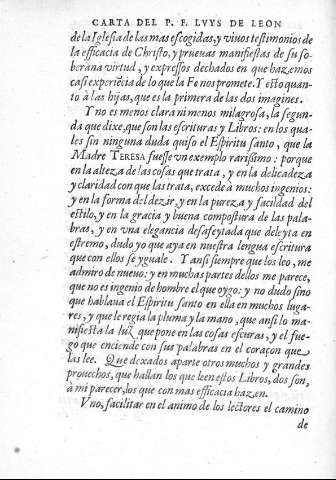 CARTA DEL P. F. LVYS DE LEON
de la Iglesia de las mas escogidas, y viuos testimonios de
la efficacia de Christo, y prueuas manifiestas de su so-
berana virtud, y expressos dechados en que hazemos
casi experiēcia de lo que la Fe nos promete. Y esto quan-
to à las hijas, que es la primera de las dos imagines.
Y no es menos clara ni menos milagrosa, la segun-
da que dixe, que son las escrituras y Libros: en los qua-
les sin ninguna duda quiso el Espiritu santo, que la
Madre TERESA fuesse vn exemplo rarissimo: porque
en la alteza de las cosas que trata, y en la delicadeza
y claridad con que las trata, excede à muchos ingenios:
y en la forma del dezir, y en la pureza y facilidad del
estilo, y en la gracia y buena compostura de las pala-
bras, y en vna elegancia desafeytada que deleyta en
estremo, dudo yo que aya en nuestra lengua escritura
que con ellos se yguale. Y ansi siempre que los leo, me
admiro de nueuo: y en muchas partes dellos me parece,
que no es ingenio de hombre el que oygo: y no dudo sino
que hablaua el Espiritu santo en ella en muchos luga-
res, y que le regia la pluma y la mano, que ansi lo ma-
nifiesta la luz que pone en las cosas escuras, y el fue-
go que enciende con sus palabras en el coraçon que
las lee. Que dexados aparte otros muchos y grandes
prouechos, que hallan los que leen estos Libros, dos son,
à mi parecer, los que con mas efficacia hazen.
Vno, facilitar en el animo de los lectores el camino
de